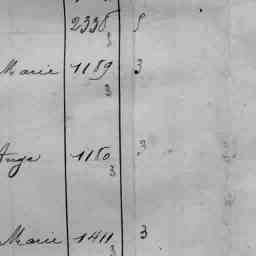 2338
3
Marie 1189 3
3
Ange 1180 3
3
Marie 1411 3
3